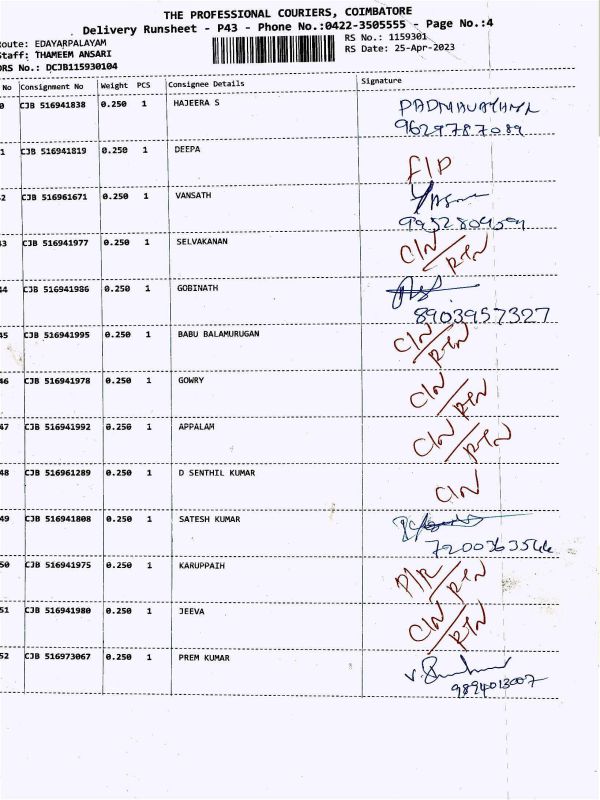 THE PROFESSIONAL COURIERS, COIMBATORE
Delivery Runsheet - P43 - Phone No.:0422-3505555 - Page No.:4
Route: EDAYARPALAYAM RS No.: 1159301
Staff: THAMEEM ANSARI RS Date: 25-Apr-2023
DRS No.: DCJB115930104
No Consignment No Weight PCS Consignee Details Signature
0 CJB 516941838 0.250 1 HAJEERA S
9629787089
1 CJB 516941819 0.250 1 DEEPA
F/D
2 CJB 516961671 0.250 1 VANSATH
43 CJB 516941977 0.250 1 SELVAKANAN
C/N/RTN
44 CJB 516941986 0.250 1 GOBINATH
8903957327
45 CJB 516941995 0.250 1 BABU BALAMURUGAN
C/N/RTN
46 CJB 516941978 0.250 1 GOWRY
C/N/RTN
47 CJB 516941992 0.250 1 APPALAM
C/N/RTN
48 CJB 516961289 0.250 1 D SENTHIL KUMAR
C/N
49 CJB 516941808 0.250 1 SATESH KUMAR
50 CJB 516941975 0.250 1 KARUPPAIH
P/R/RTN
51 CJB 516941980 0.250 1 JEEVA
C/N/RTN
52 CJB 516973067 0.250 1 PREM KUMAR
9894013007